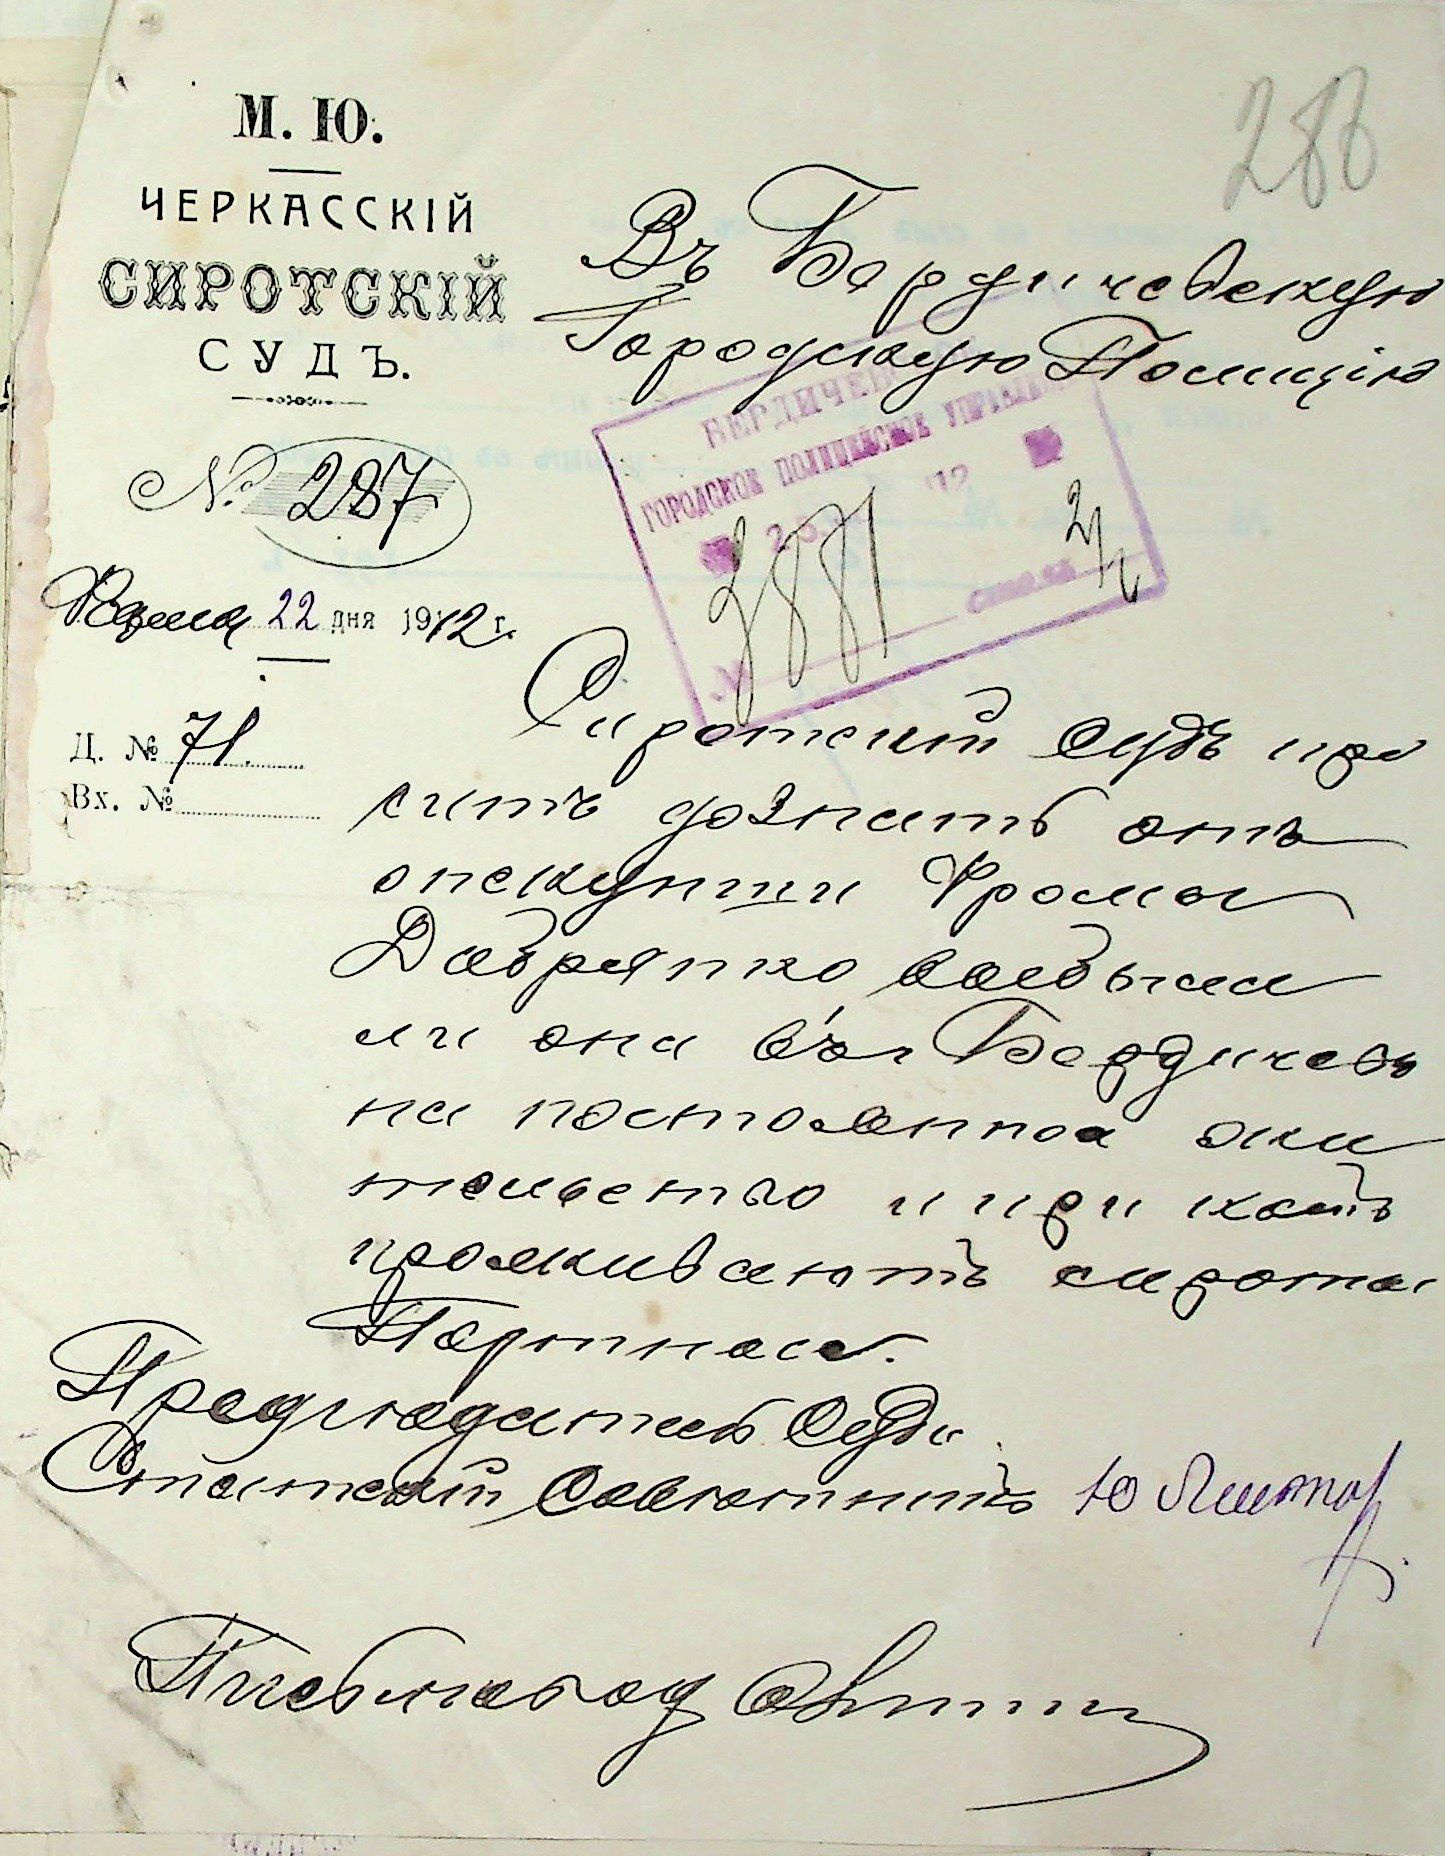 М. Ю.
ЧЕРКАССКІЙ
СИРОТСКІЙ
СУДЪ.
№ 287
22 дня 1912 г.
Д. № 71.
Вх. №
286
Въ Бердичевскую
Городскую Полицію
БЕРДИЧЕВ
ГОРОДСКОЕ ПОЛИЦЕЙСКОЕ УПРАВЛЕНІЕ
12
3881
Сиротскій Судъ про
ситъ дознать отъ
опекунши Фромы
ли она въ г Бердичевъ
на постоянное жи
тельство и при комъ
проживаютъ сироты
Предсѣдатель Суда
Статскій Совѣтникъ Ю
Письмовод